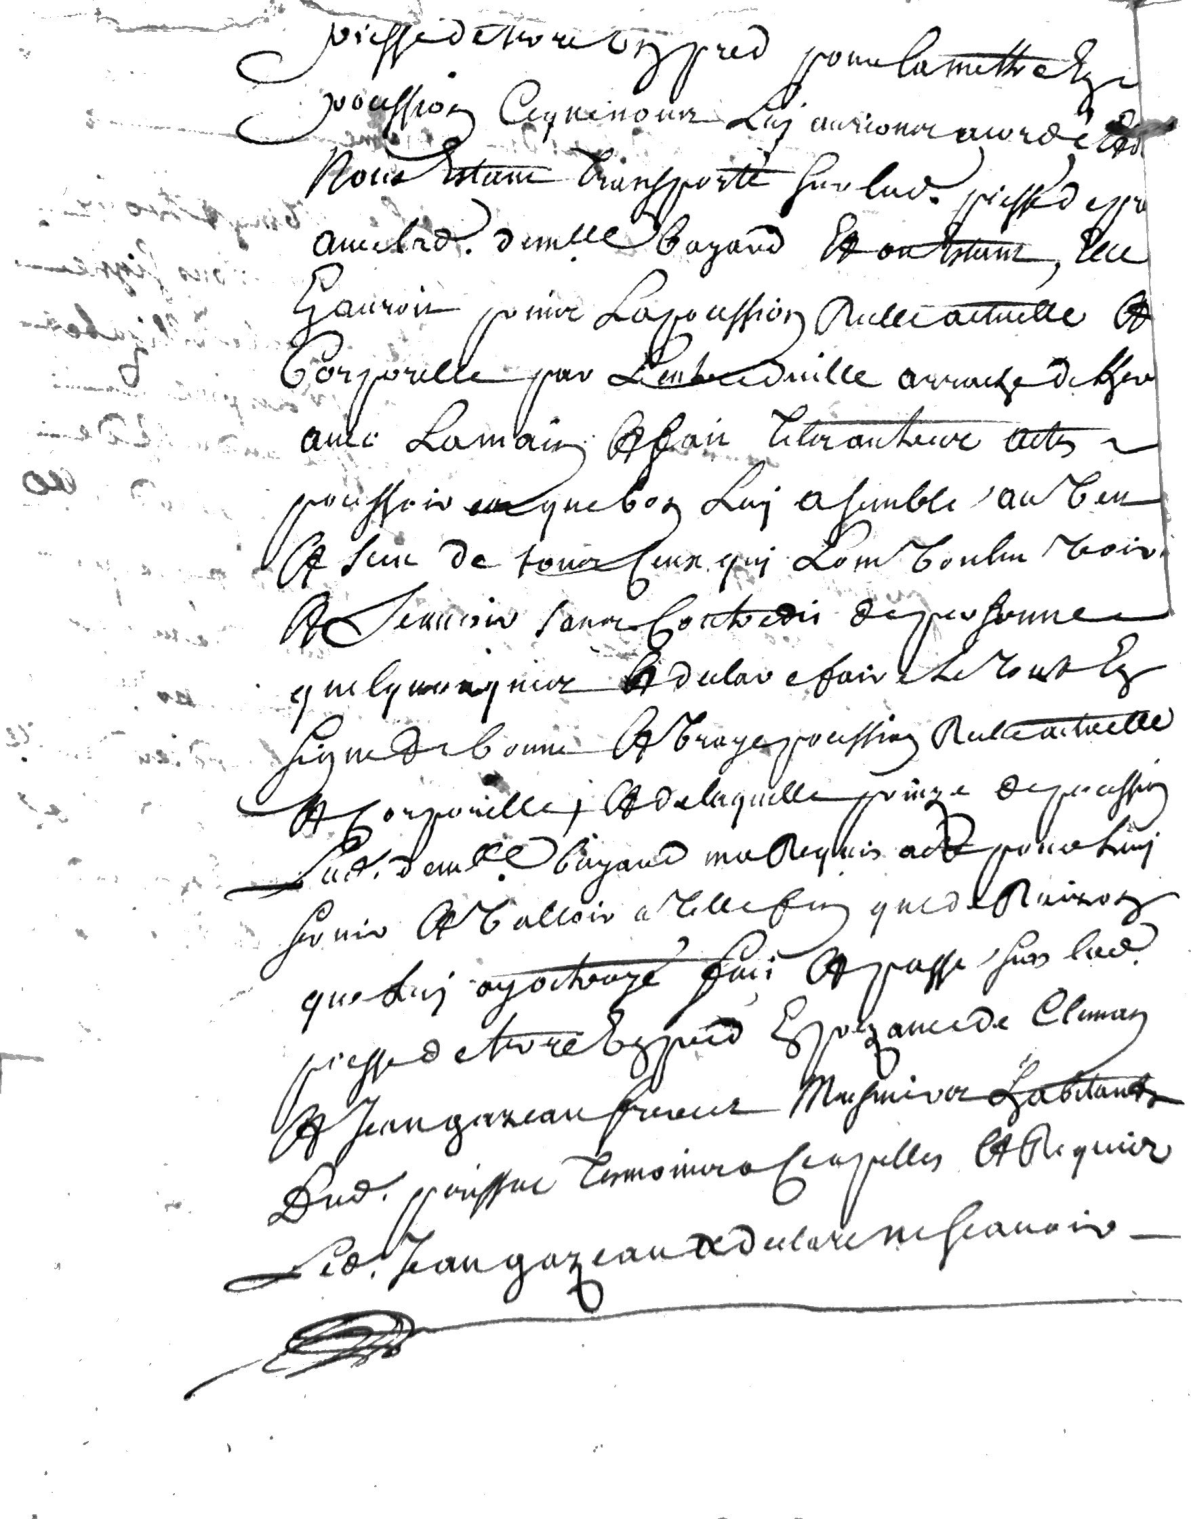 piesse de terre en pred pour la mettre en
possession Ce que nous luy aurions acordé Et
Nous Estant transporté sur lad. piesse de pre
avec lad. demlle bayard Et on Estant, Elle
En auroit prins La possession Reelle actuelle Et
Corporelle par L'entree d'icelle arrache de lher
avec La main Et fait telz autres actes
possessoir que bon luy a semblé au veu
Et sceu de tous Ceux quy L'ont voulu voir
Et scavoir sans Contredit de personne
quelquonques Et declare faire Le tout En
signe de bonne Et vraye possession Reelle actuelle
Et Corporelle, Et de laquelle prinze de possession
Lad. demlle bayard ma Requis acte pour luy
servir Et valloir a telle fin que de Raizon
que luy ay octroyé fait Et passé sur lad.
piesse de terre En pred En prezance de Cleman
Et Jean gazeau freres Habitants
Dud. tesmoins a Ce apelles Et Requis
Led. Jean gazeau a declaré ne scavoir